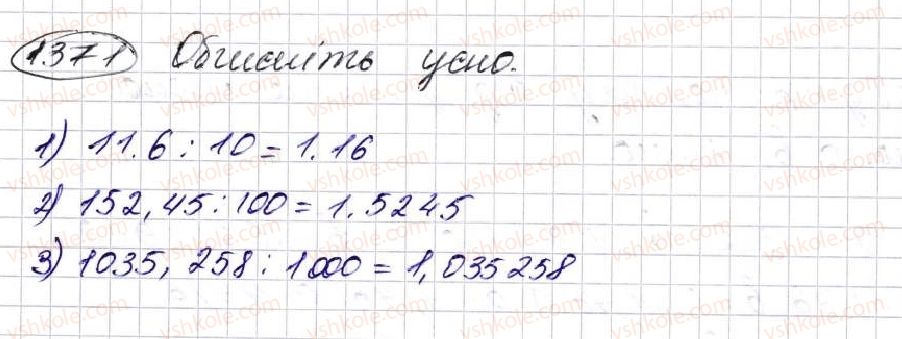 1.371 Обчисліть усно.
1) 11.6 : 10 = 1.16
2) 152,45 : 100 = 1.5245
3) 1035, 258 : 1000 = 1,035258